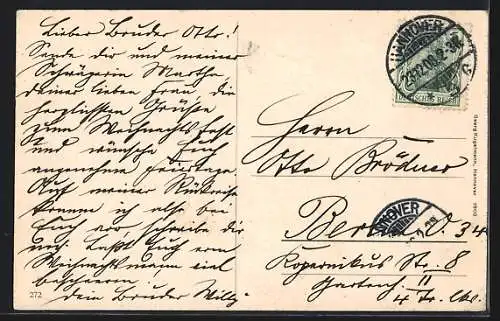 Lieber Bruder Otto!
Sende dir und meiner
Schwägerin Martha
deiner lieben Frau die
herzlichsten Grüße
zum Weihnachtsfest
und wünsche Euch
angenehme Feiertage.
Auf meiner Rückreise
komme ich also bei
Euch vor, schreibe dir
noch. Laßt Euch vom
Weihnachtsmann viel
bescheeren.
Dein Bruder Willy
272
HANNOVER
DEUTSCHES REICH
Herrn
Otto Brödner
Berlin O. 34
Kopernikus Str. 8
Gartenh. II
4 Tr. lks.
HANNOVER